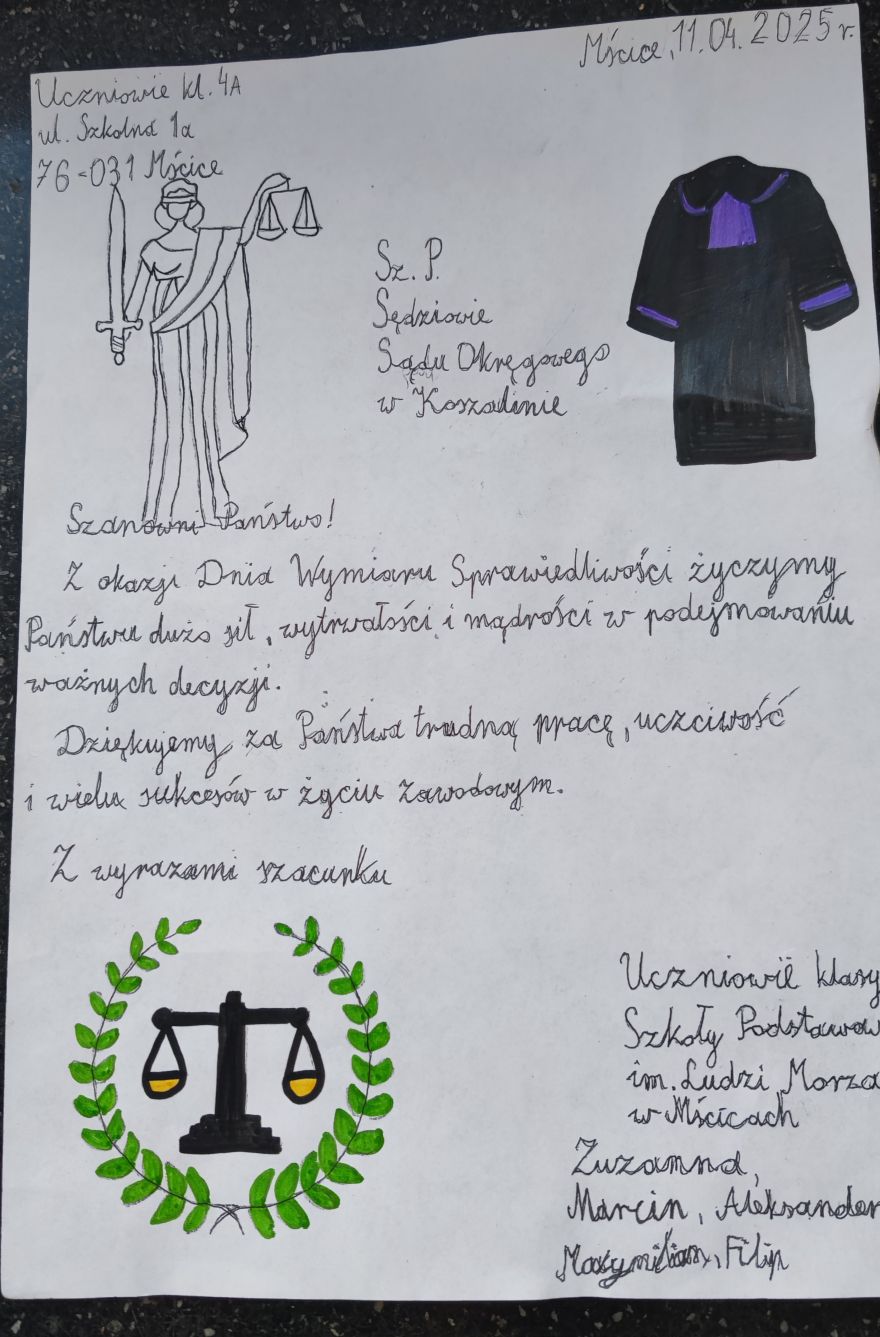 Mścice, 11.04.2025 r.
Uczniowie kl. 4A
ul. Szkolna 1a
76-031 Mścice
Sz. P.
Sędziowie
Sądu Okręgowego
w Koszalinie
Szanowni Państwo!
Z okazji Dnia Wymiaru Sprawiedliwości życzymy
Państwu dużo sił, wytrwałości i mądrości w podejmowaniu
ważnych decyzji.
Dziękujemy za Państwa trudną pracę, uczciwość
i wielu sukcesów w życiu zawodowym.
Z wyrazami szacunku
Uczniowie klasy
Szkoły Podstawow
im. Ludzi Morza
w Mścicach
Zuzanna,
Marcin, Aleksander
Maxymilian, Filip